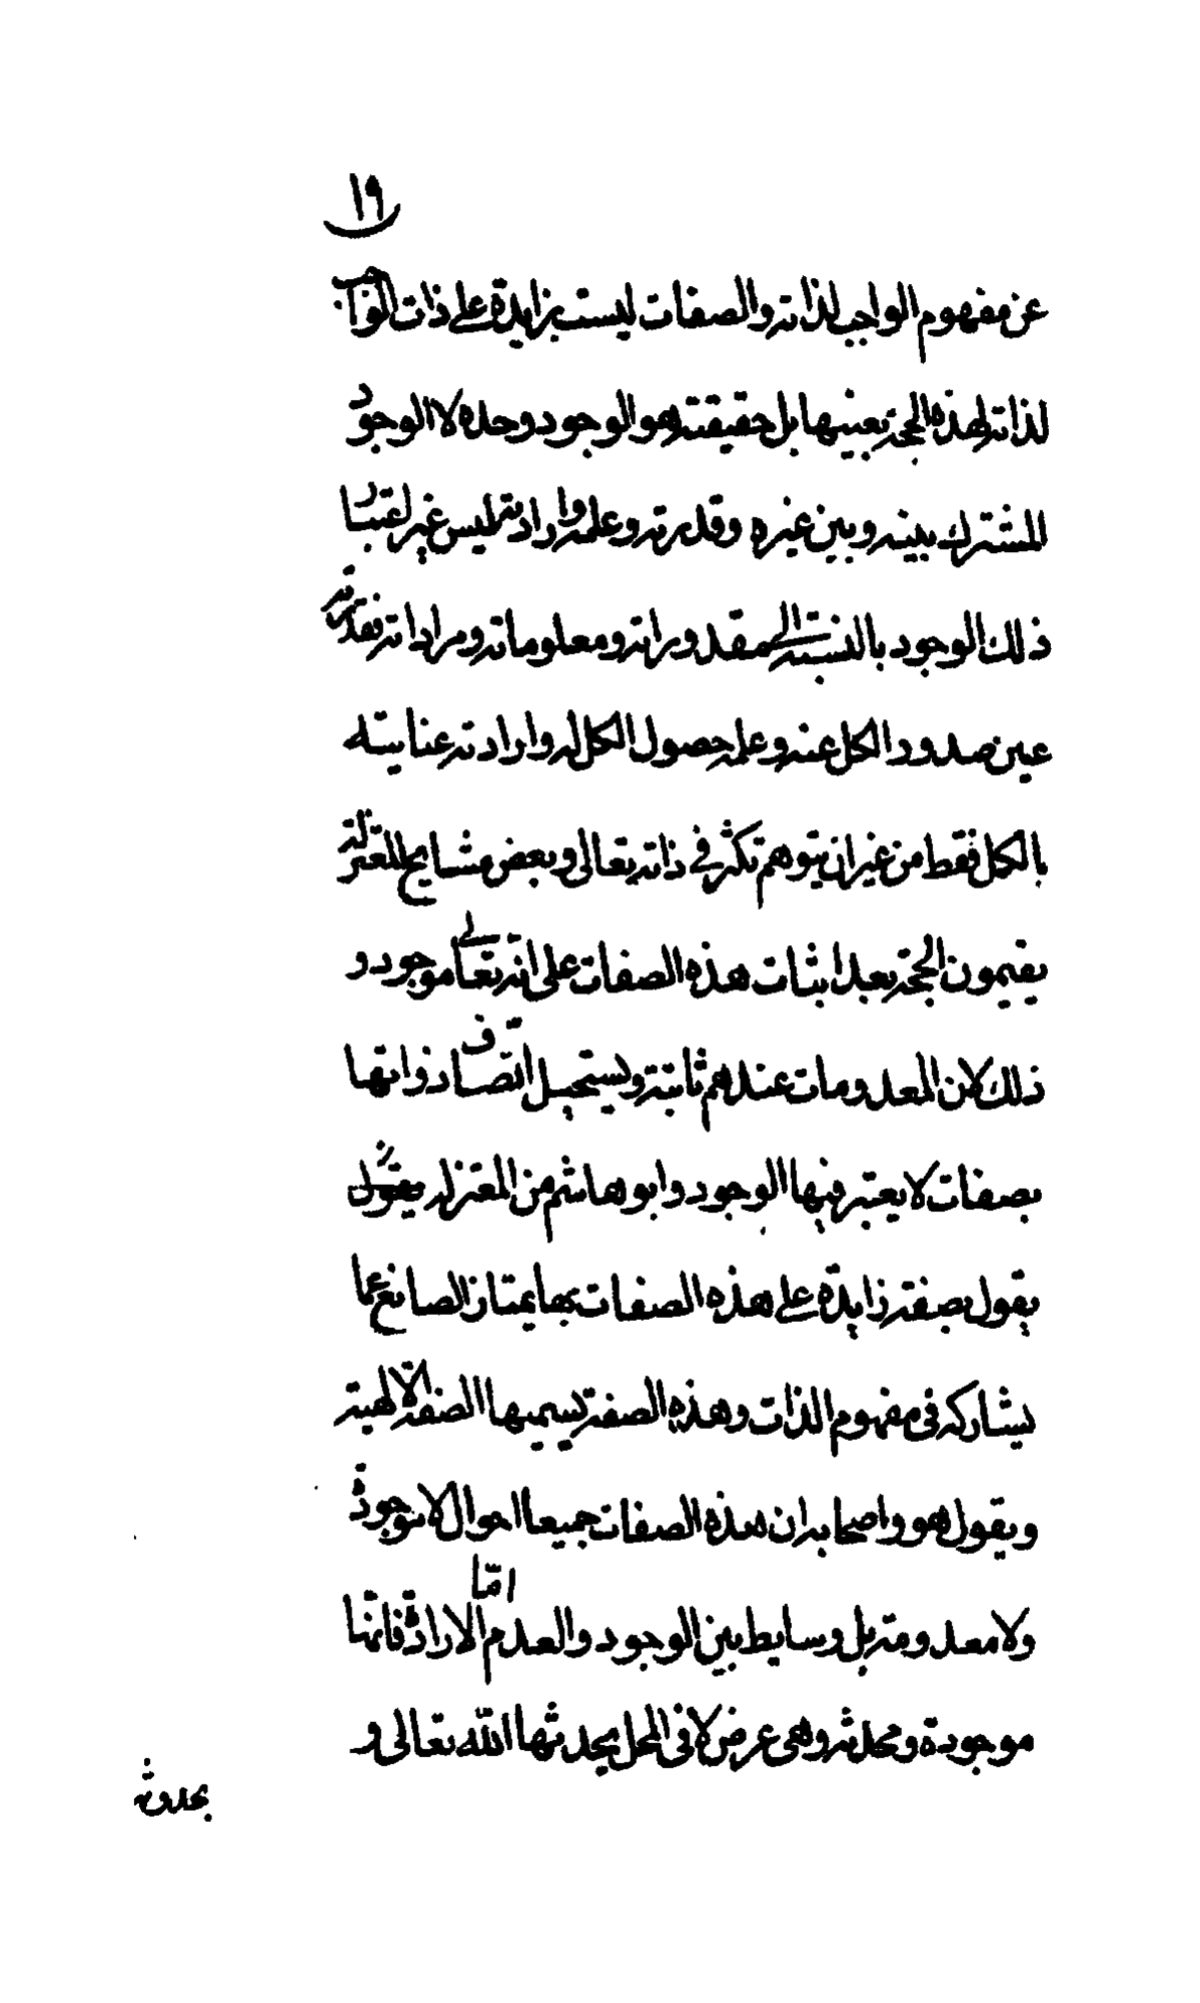 ١٩
عن مفهوم الواجب لذاته والصفات ليست بزايدة على ذات الواجب
لذاته لهذه الحجة بعينها بل حقيقته هو الوجود وحده لا الوجود
المشترك بينه وبين غيره وقدرته وعلمه وارادته ليس غير اعتبار
ذلك الوجود بالنسبة الى مقدوراته ومعلوماته ومراداته فقدرته
عين صدور الكل عنه وعلمه حصول الكل له وارادته عنايته
بالكل فقط من غير ان يتوهم تكثر في ذاته تعالى وبعض مشايخ المعتزلة
يقيمون الحجة بعد اثبات هذه الصفات على انه تعالى موجود و
ذلك لان المعدومات عندهم ثابتة ويستحيل اتصاف ذواتها
بصفات لا يعتبر فيها الوجود وابو هاشم من المعتزله يقول
يقول بصفة زايدة على هذه الصفات بها يمتاز الصانع عما
يشاركه في مفهوم الذات وهذه الصفة يسميها الصفة الالهية
ويقول هو واصحابه ان هذه الصفات جميعا احوال لا موجودة
ولا معدومة بل وسايط بين الوجود والعدم امّا الارادة فانها
موجودة ومحدثة وهي عرض لا في المحل يحدثها الله تعالى و
بحدوثه